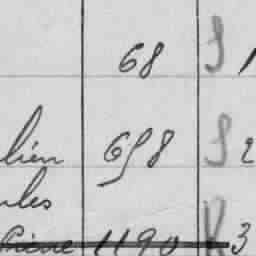 68 S 1
lien 698 S 2
les
Pierre 1190 K 3